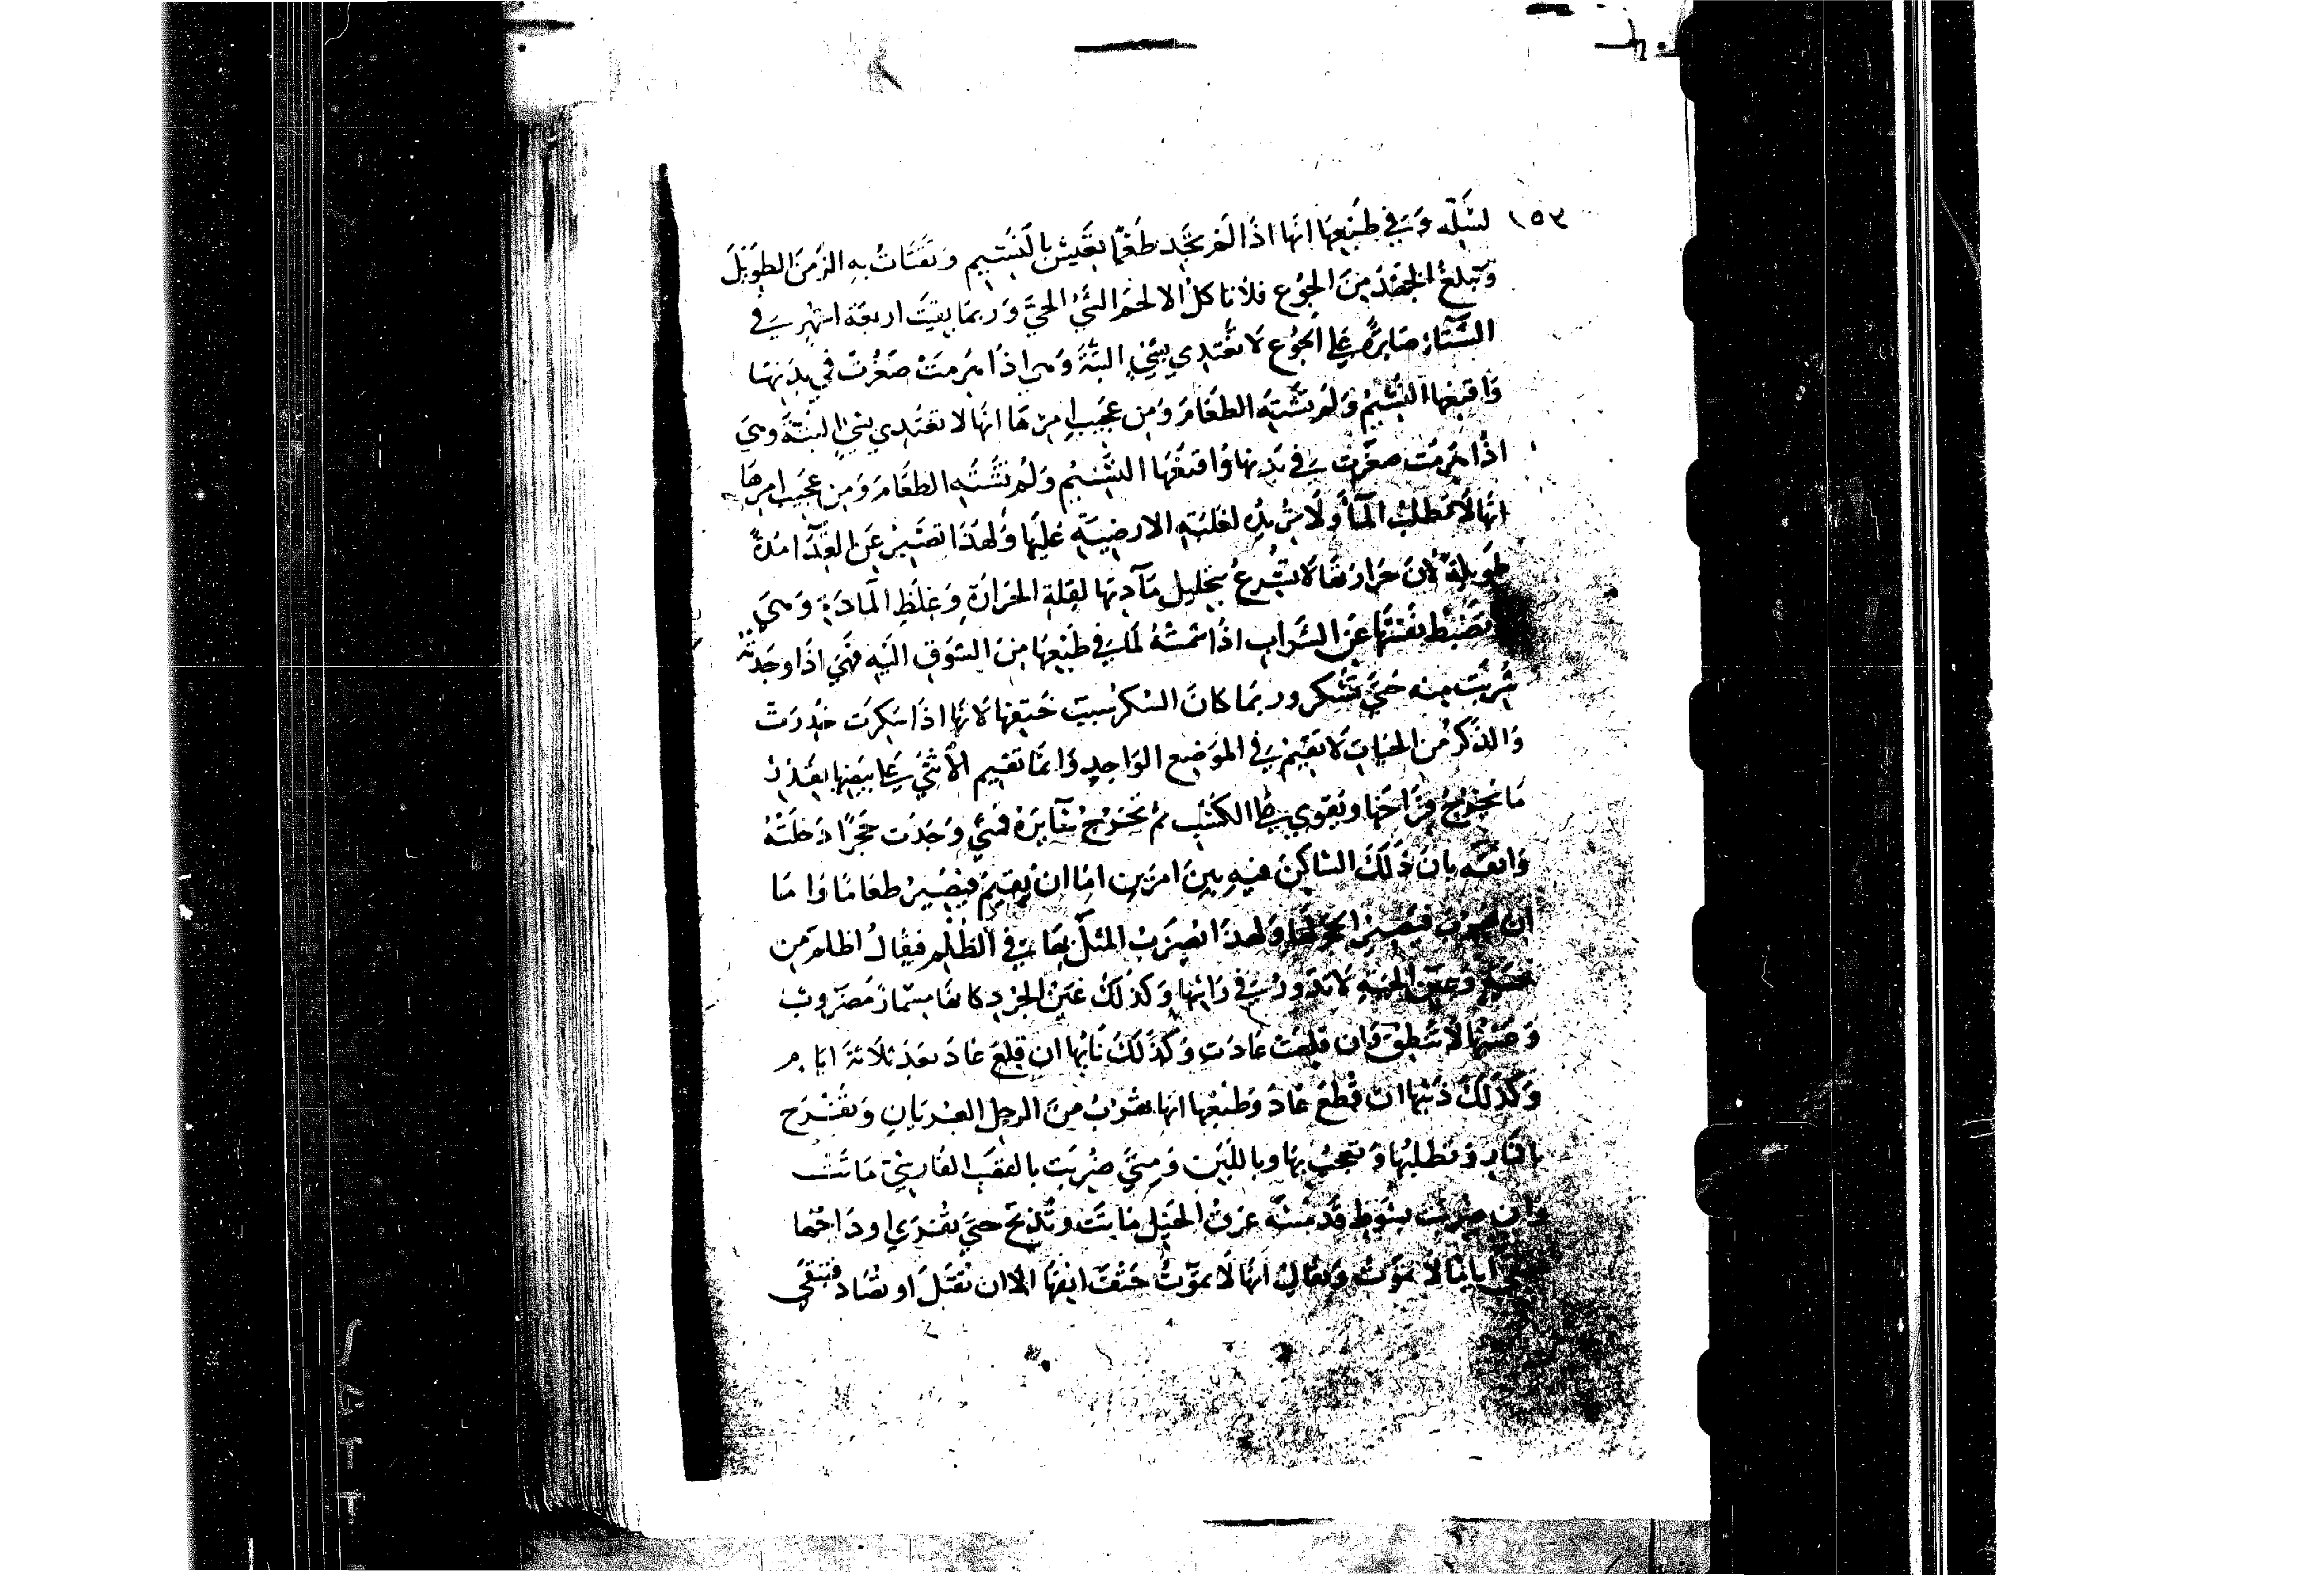 ١٥٣
لسَبله وَفي طَبعِهَا انهَا اذَا لَم تجَد طَعْمًا تعَيش بالنَسَيم وَتقتَاتُ بهِ الزَمنَ الطوَيل
وَتبلغُ الجَهْدُ منَ الجوُع فلا تاكلُ الا لحمَ الشَيُ الحيَّ وَربمَا بقيَت اربعَة اشهِر في
الشَتاء صَابرةً عَلي الجوُع لا تغتدي بشَيٍ البتةَ وَهي اذَا هَرمتْ صَغُرتْ في بدَنهَا
وَاقنعَهَا النسَيمُ وَلم تشتهِ الطعَامَ وَمِن عَجيَبِ امرِهَا انهَا لا تغتدي بشَيٍ البتةَ وهيَ
اذَا هَرمَت صغَرت في بدَنهَا وَاقنعَهَا النسَيمُ وَلم تشَتهِ الطعَامَ وَمِن عجَيَب امرِهَا
انهَا لا تطلبُ المآءَ وَلا تريدُه لغلبَة الارضِيَةِ عَليهَا وَلهَذَا تصَبر عَن الغِذَا مُدةً
طوَيلةً لان حَرارتهَا لا تسْرعُ بتحليلِ مآدتهَا لقِلة الحرَارةِ وَغلظِ المادَةِ وَهيَ
لا تضَبط نفسَهَا عَن الشرَاب اذَا شمتْهُ لما في طَبعهَا منَ الشوَق اليَه فهَيَ اذَا وجَدته
شربَت منه حَتيَّ تسْكر وربمَا كانَ السْكر سَببَ حَتفهَا لانهَا اذَا سَكِرَت خَدِرَتْ
وَالذَكرُ منَ الحيَاتِ لا يقيَم في الموَضِع الوَاحِدِ وَانمَا تقيم الأنثيَ عَلي بيَضِهَا بقَدَر
مَا تخرُج فِرَاخهَا وتقوَي عَلي الكسَب ثم تخرُجُ سَآيرَة فمَتيَ وَجَدَت جُحرًا دَخلَتْهُ
وَاثقَه بانَ ذَلكَ السَاكنَ فيهِ بينَ امرَين امَا ان يُقيَمَ فيَصَيرُ طعَامًا وَامَا
ان يهرب فيَصَير الجحر لهَا وَلهذَا يضرَبُ المثلُ بهَا في الظلْمِ فيقالُ اظلمَ مِن
حَيَةٍ وَعَينُ الحيَةِ لا تدَورُ في رَاسِهَا وَكذَلكَ عَينُ الجَرَادِ كانهَا مِسمَارٌ مَضَروبٌ
وَعَينهَا لا تنطبق وَان قلِعَت عَادَتِ وَكذَلكَ نَابُهَا ان قلِعَ عَادَ بعَد ثلاثةَ ايَام
وَكذَلكَ ذَنَبُهَا ان قُطعَ عَادَ وَطبعُهَا انهَا تهْرُبُ منَ الرجلِ العُريَانِ وَتفْرَح
بالنَار وَتطلبُهَا وَتعجبُ بهَا وباللبَن وَمتيَ ضُربَت بالقصَب الفَارسَيّ مَاتت
وَان ضُربَت بسَوطٍ قدَ مَسَّه عرَق الخيَل مَاتت وتُذبَح حتيَ تفريَ اودَاجهَا
فتبقَي ايَامًا لا تموَتُ وَيقالُ انهَا لا تموَتُ حَتفَ انفهَا الا ان تُقتَلَ او تصَاد فتبقَي